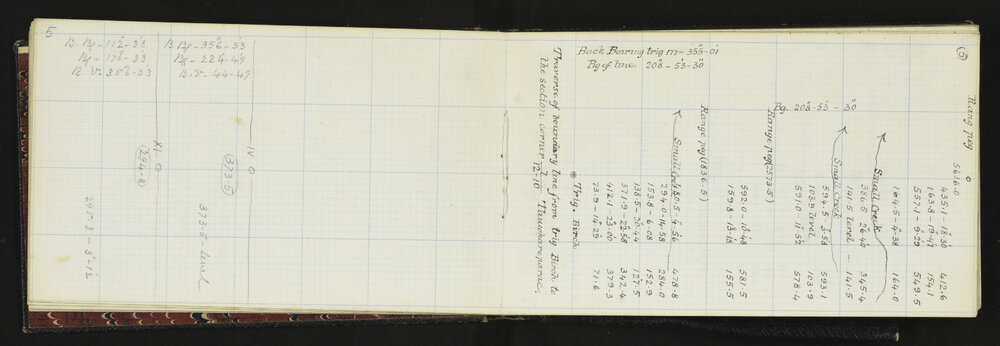 5
B. Bg - 112°-33' B. Bg - 356°-33'
Bg - 176°-33' Bg - 224°-49'
B.V - 356°-33' B.V - 44-49
XI
294.8
IV
373.5
295.3 - 3°-12'
373.5 - level
5
Back Bearing trig M - 355°-01'
Bg of line 208°-53'-30"
Traverse of boundary line from trig Birch to
the section corner 12-10
Bg. 208°-53'-30"
Rang peg
5616.0
435.1 - 18°.30' 412.6
163.8 - 19°.47' 154.1
557.1 - 9°.29' 549.5
164.5 - 4°.38' 164.0
Small Creek
386.5 - 26°.40' 345.4
141.5 level - 141.5
Small Creek
594.5 - 3°.58' 593.1
103.9 level 103.9
591.0 - 11°.52' 578.4
Range peg (2573.5)
592.0 - 10°.48' 581.5
159.8 - 13°.18' 155.5
Range peg (1836.5)
Small Creek
480.5 - 4°.56' 478.8
294.0 - 14.58 284.0
153.8 - 6.08 152.9
138.5 - 20°.44' 127.5
371.9 - 22°.58' 342.4
412.1 - 23°.00' 379.3
73.9 - 14°.29' 71.6
Trig. Birch